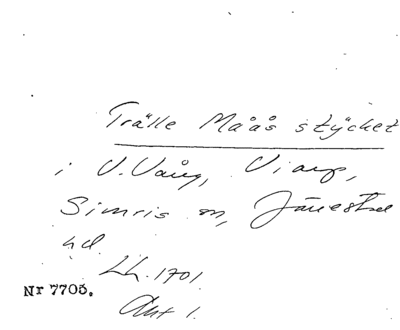 Trälle Måås stycket
i V. Vång, Viarp,
Simris sn, Järrestad
hd.
Lh. 1701.
Nr 7705.
Akt 1.